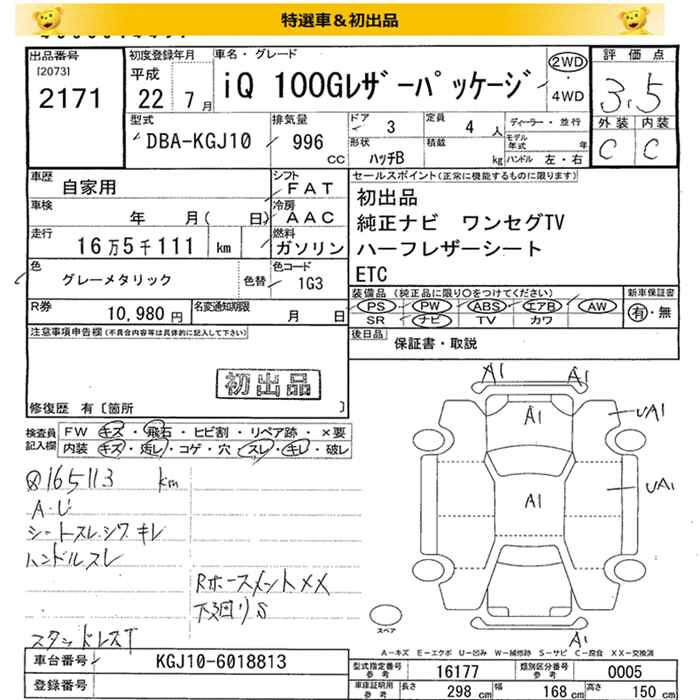 特選車＆初出品
出品番号 初度登録年月 車名・グレード 評価点
[2073] 平成 iQ 100Gレザーパッケージ 2WD
2171 22 7月 4WD 3.5
型式 排気量 ドア 3 定員 4 人 ディーラー・並行 外装 内装
DBA-KGJ10 996 cc 形状 ハッチB 積載 kg モデル年式 年 C C
ハンドル 左・右
車歴 自家用 シフト FAT セールスポイント(正常に機能するものに限ります)
車検 年 月( 日) 冷房 AAC 初出品
走行 16万5千111 km 燃料 ガソリン 純正ナビ ワンセグTV
ハーフレザーシート
色 グレーメタリック 色替 色コード 1G3 ETC
R券 10,980 円 名変通知期限 月 日 装備品 (純正品に限り○をつけてください) 新車保証書
PS PW ABS エアB AW 有・無
SR ナビ TV カワ
注意事項申告欄(不具合内容等は具体的に記入して下さい) 後日品 保証書・取説
初出品
修復歴 有[箇所 ]
検査員記入欄 FW キズ・飛石・ヒビ割・リペア跡・×要
内装 キズ・汚レ・コゲ・穴・スレ・キレ・破レ
A1 A1
A1 UA1
A1 UA1
A1
Q165113 km
A.U
シートスレ.シワ キレ
ハンドルスレ
Rホースメント××
下廻りS
スタッドレスT
スペア
A－キズ E－エクボ U－凹み W－補修跡 S－サビ C－腐食 XX－交換済
車台番号 KGJ10-6018813 型式指定番号 参考 16177 類別区分番号 参考 0005
登録番号 車庫証明用 参考 長さ 298 cm 幅 168 cm 高さ 150 cm